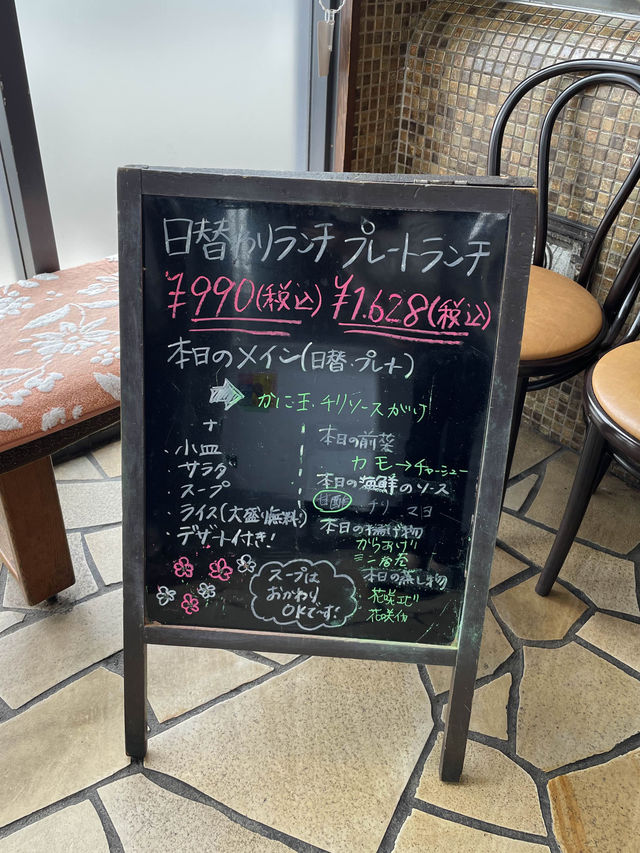 日替わりランチ プレートランチ
¥990(税込) ¥1.628(税込)
本日のメイン(日替・プレート)
かに玉・チリソースがけ
+
・小皿
・サラダ
・スープ
・ライス(大盛り無料)
・デザート付き!
本日の前菜
カモ→チャーシュー
本日の海鮮のソース
甘酢 チリ マヨ
本日の揚げ物
からあげ
ミニ春巻
本日の蒸し物
花咲エビ
花咲
スープは
おかわり
OKです!